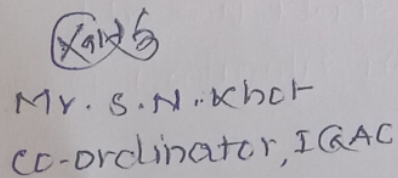 Mr. S. N. Khot
Co-ordinator, IQAC